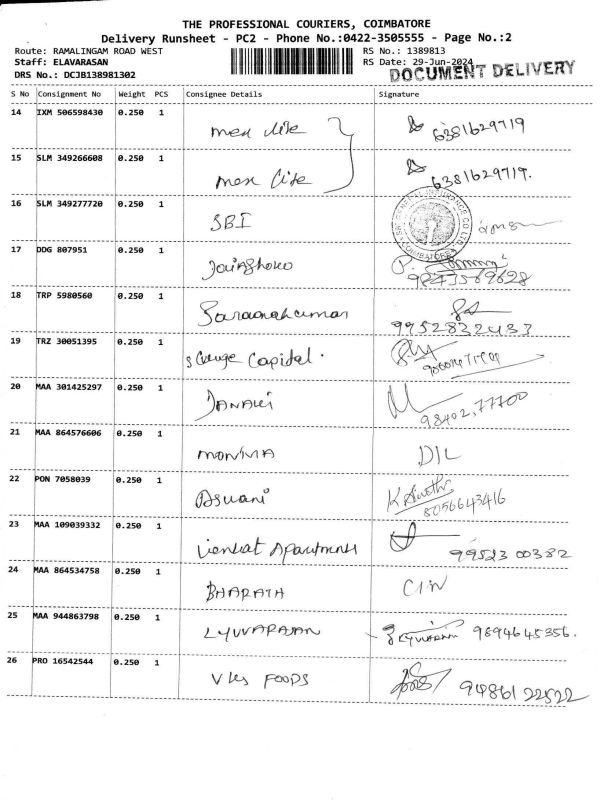 THE PROFESSIONAL COURIERS, COIMBATORE
Delivery Runsheet - PC2 - Phone No.:0422-3505555 - Page No.:2
Route: RAMALINGAM ROAD WEST RS No.: 1389813
Staff: ELAVARASAN RS Date: 29-Jun-2024
DRS No.: DCJB138981302 DOCUMENT DELIVERY
S No Consignment No Weight PCS Consignee Details Signature
14 IXM 506598430 0.250 1 6381629719
15 SLM 349266608 0.250 1 6381629719.
16 SLM 349277720 0.250 1 SBI
17 DDG 807951 0.250 1 9843569628
18 TRP 5980560 0.250 1 Saravanakumar 9952832433
19 TRZ 30051395 0.250 1 Capital.
20 MAA 301425297 0.250 1 98402,77700
21 MAA 864576606 0.250 1 D/L
22 PON 7058039 0.250 1 Aswani 8056643416
23 MAA 109039332 0.250 1 Venkat Apartments 99523 00382
24 MAA 864534758 0.250 1 BHARATH
25 MAA 944863798 0.250 1 9894645356.
26 PRO 16542544 0.250 1 FOODS 94861 22522